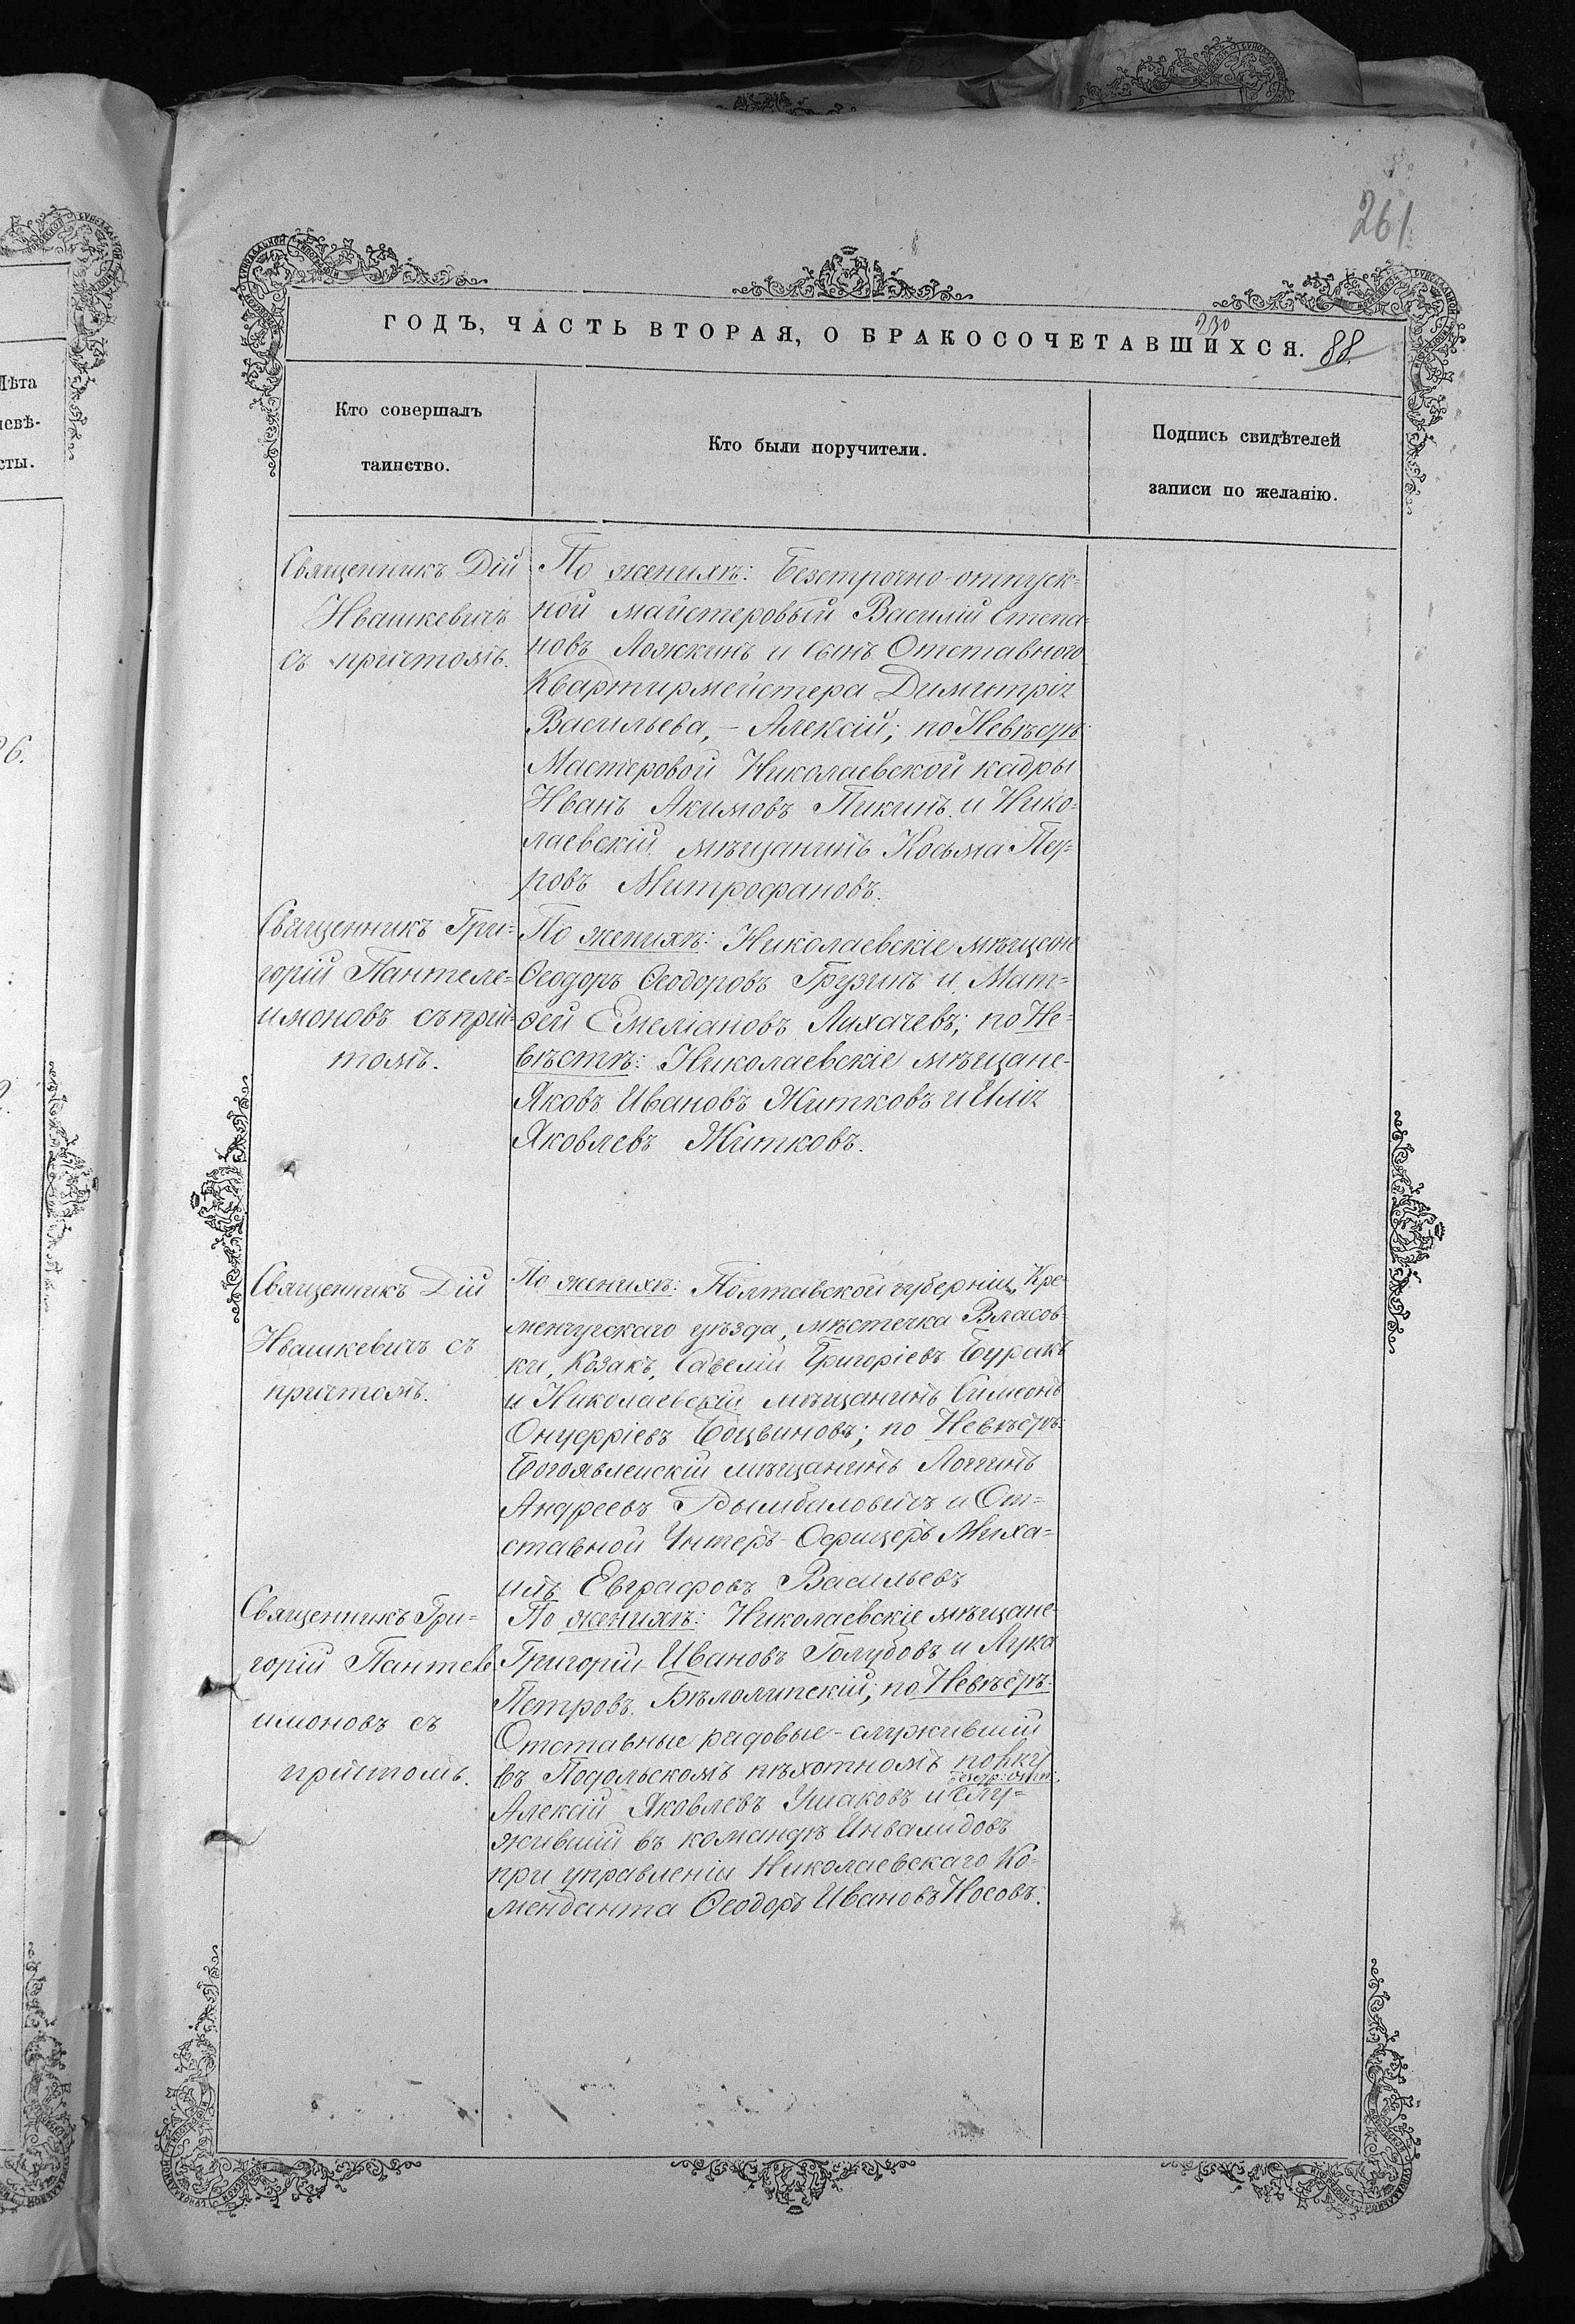 261
ГОДЪ, ЧАСТЬ ВТОРАЯ, О БРАКОСОЧЕТАВШИХСЯ.
230
88.
Кто совершалъ
таинство.
Кто были поручители.
Подпись свидѣтелей
записи по желанію.
Лѣта
невѣ-
сты.
26.
Священникъ Дій
Ивашкевичъ
съ причтомъ.
По женихѣ: Безсрочно-отпуск=
ной майстеровый Василій Степа=
новъ Ложкинъ и сынъ Отставного
Квартирмейстера Димитрія
Васильева, - Алексій; по Невѣстѣ:
Мастеровой Николаевской кадры
Иванъ Акимовъ Пикинъ и Нико=
лаевскій мѣщанинъ Косьма Пет=
ровъ Митрофановъ.
Священникъ Гри=
горій Пантеле=
имоновъ съ прич=
томъ.
По женихѣ: Николаевскіе мѣщане
Ѳеодоръ Ѳеодоровъ Грузинъ и Мат=
ѳей Емеліановъ Лихачевъ; по Не=
вѣстѣ: Николаевскіе мѣщане-
Яковъ Ивановъ Житковъ и Илія
Яковлевъ Житковъ.
Священникъ Дій
Ивашкевичъ съ
причтомъ.
По женихѣ: Полтавской губерніи, Кре=
менчугскаго уѣзда, мѣстечка Власов=
ки, Козакъ, Савелій Григоріевъ Буракъ
и Николаевскій мѣщанинъ Симеонъ
Онуфріевъ Боцвиновъ; по Невѣстѣ:
Богоявленскій мѣщанинъ Логгинъ
Андреевъ и От=
ставной Унтеръ-Офицеръ Миха=
илъ Евграфовъ Васильевъ
Священникъ Гри=
горій Пантеле
имоновъ съ
причтомъ.
По женихѣ: Николаевскіе мѣщане-
Григорій Ивановъ Голубовъ и Лука
Петровъ Бѣлолипскій; по Невѣстѣ:
Отставные рядовые - служившій
въ Подольскомъ пѣхотномъ полку
Алексій Яковлевъ Ушаковъ и слу=
жившій въ командѣ Инвалидовъ
при управленіи Николаевскаго Ко=
менданта Ѳеодоръ Ивановъ Носовъ.